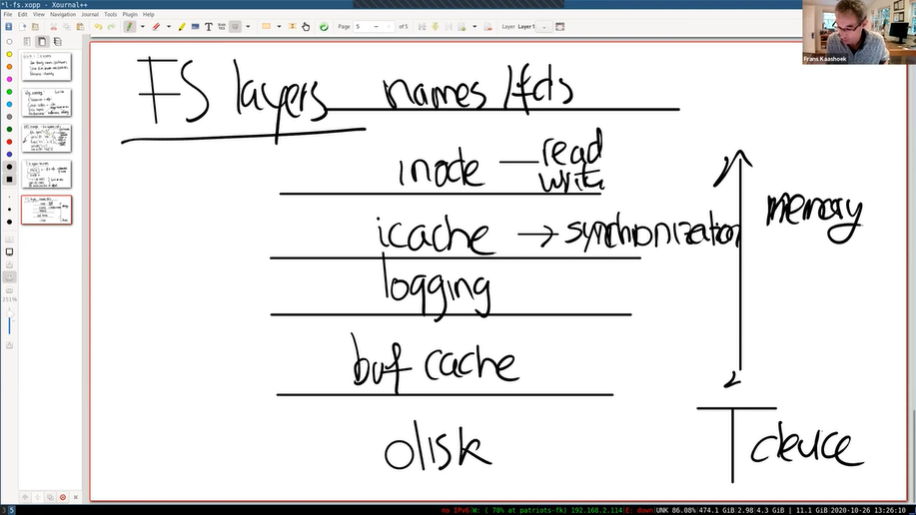 *l-fs.xopp - Xournal++
File Edit View Navigation Journal Tools Plugin Help
Page 5 of 5 Layer Layer 1
Frans Kaashoek
FS layers names / fds
inode — read
write
icache → synchronization
memory
logging
buf cache
disk
device
251%
3 5
no IPv6 W: ( 70% at patriots-fk) 192.168.2.114 E: down UNK 86.08% 474.1 GiB 2.98 4.3 GiB | 11.1 GiB 2020-10-26 13:26:10